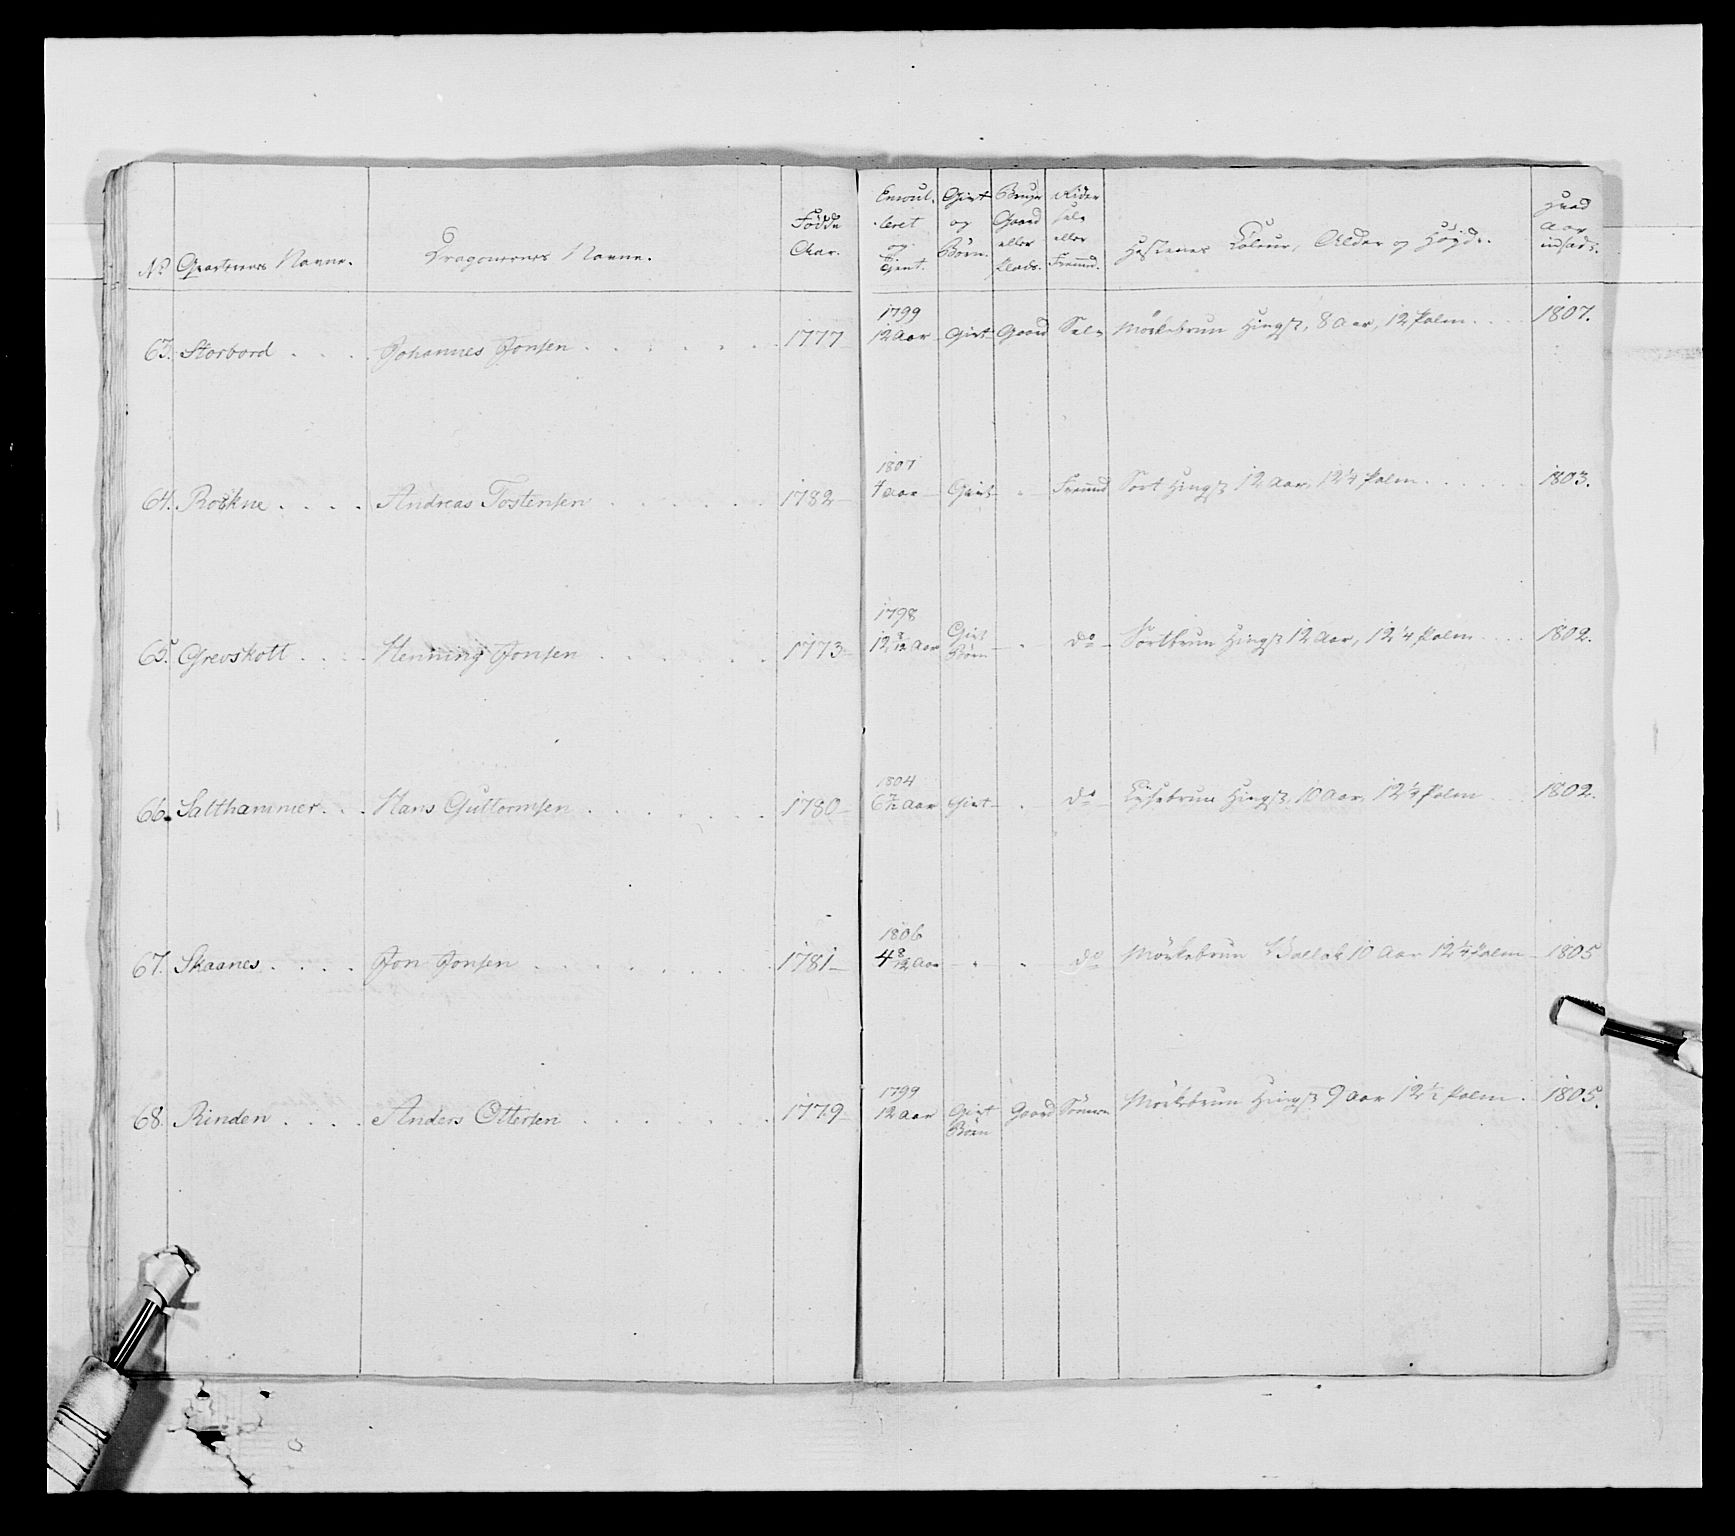 No Qvarterernes Navne. Dragonernes Navne. Fødde Aar. Enroulleret og Tjent. Givt og Børn. Bruger Gaard eller Plads. Rider selv eller Fremd. Hestenes Coleur, Alder og Høyde. Hvad Aar indsadt.
63. Storbord . . . . Johannes Jonsen . . . . . . . 1777 1799 12 Aar Givt Gaard Selv Mørkebrun Hingst, 8 Aar, 12 Palm . . . 1807.
64. Roskne . . . . Andreas Tostensen . . . . . . 1782 1807 4 aar Givt " Fremd Sort Hingst 12 Aar, 12 1/4 Palm . . . . . . 1803.
65. Grevskott . . . . Henning Jonsen . . . . . . 1773 1798 12 8/12 Aar Givt Børn " do Sortbrun Hingst 12 Aar, 12 1/4 Palm . . . 1802.
66. Salthammer . . . Hans Guttormsen . . . . . . 1780 1804 6 7/12 Aar Givt " do Lysebrun Hingst, 10 Aar, 12 1/4 Palm . . 1802.
67. Skaanes . . . . Jon Jonsen . . . . . . . . 1781 1806 4 8/12 Aar " " do Mørkebrun Vallak 10 Aar 12 1/4 Palm 1805
68. Rinden . . . . Anders Ottersen . . . . . . . 1779 1799 12 aar Givt Børn Gaard Mørkebrun Hingst 9 Aar 12 1/2 Palm . 1805.